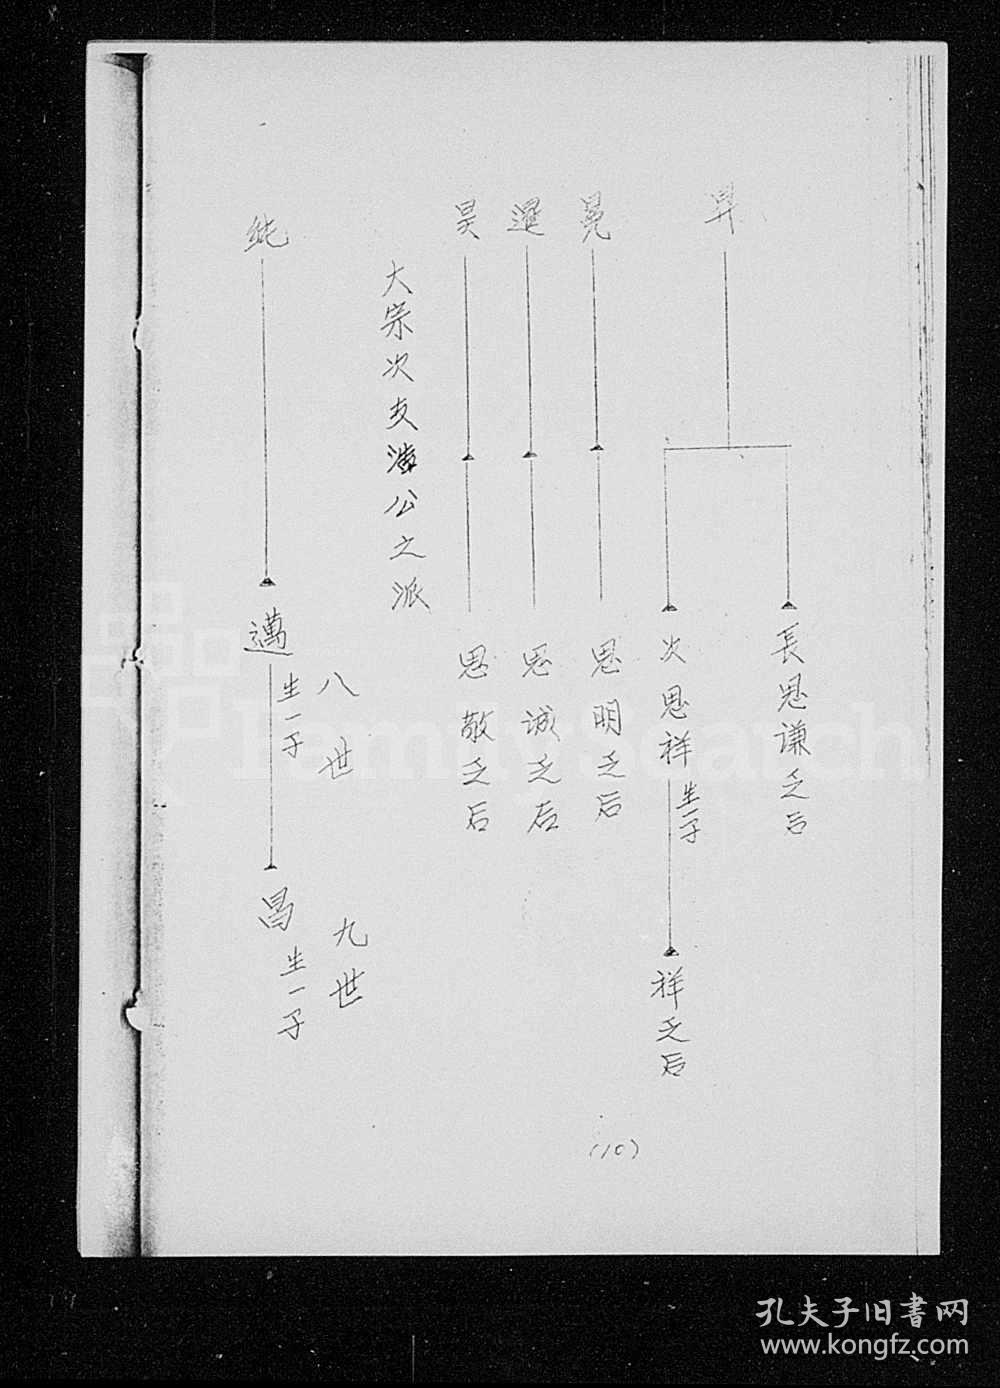 昇
長思谦之后
次思祥生一子
祥之后
晃
思明之后
暹
思诚之后
昊
思敬之后
大宗次支公之派
八世
九世
純
邁生一子
昌生一子
(10)
FamilySearch
孔夫子旧書网
www.kongfz.com